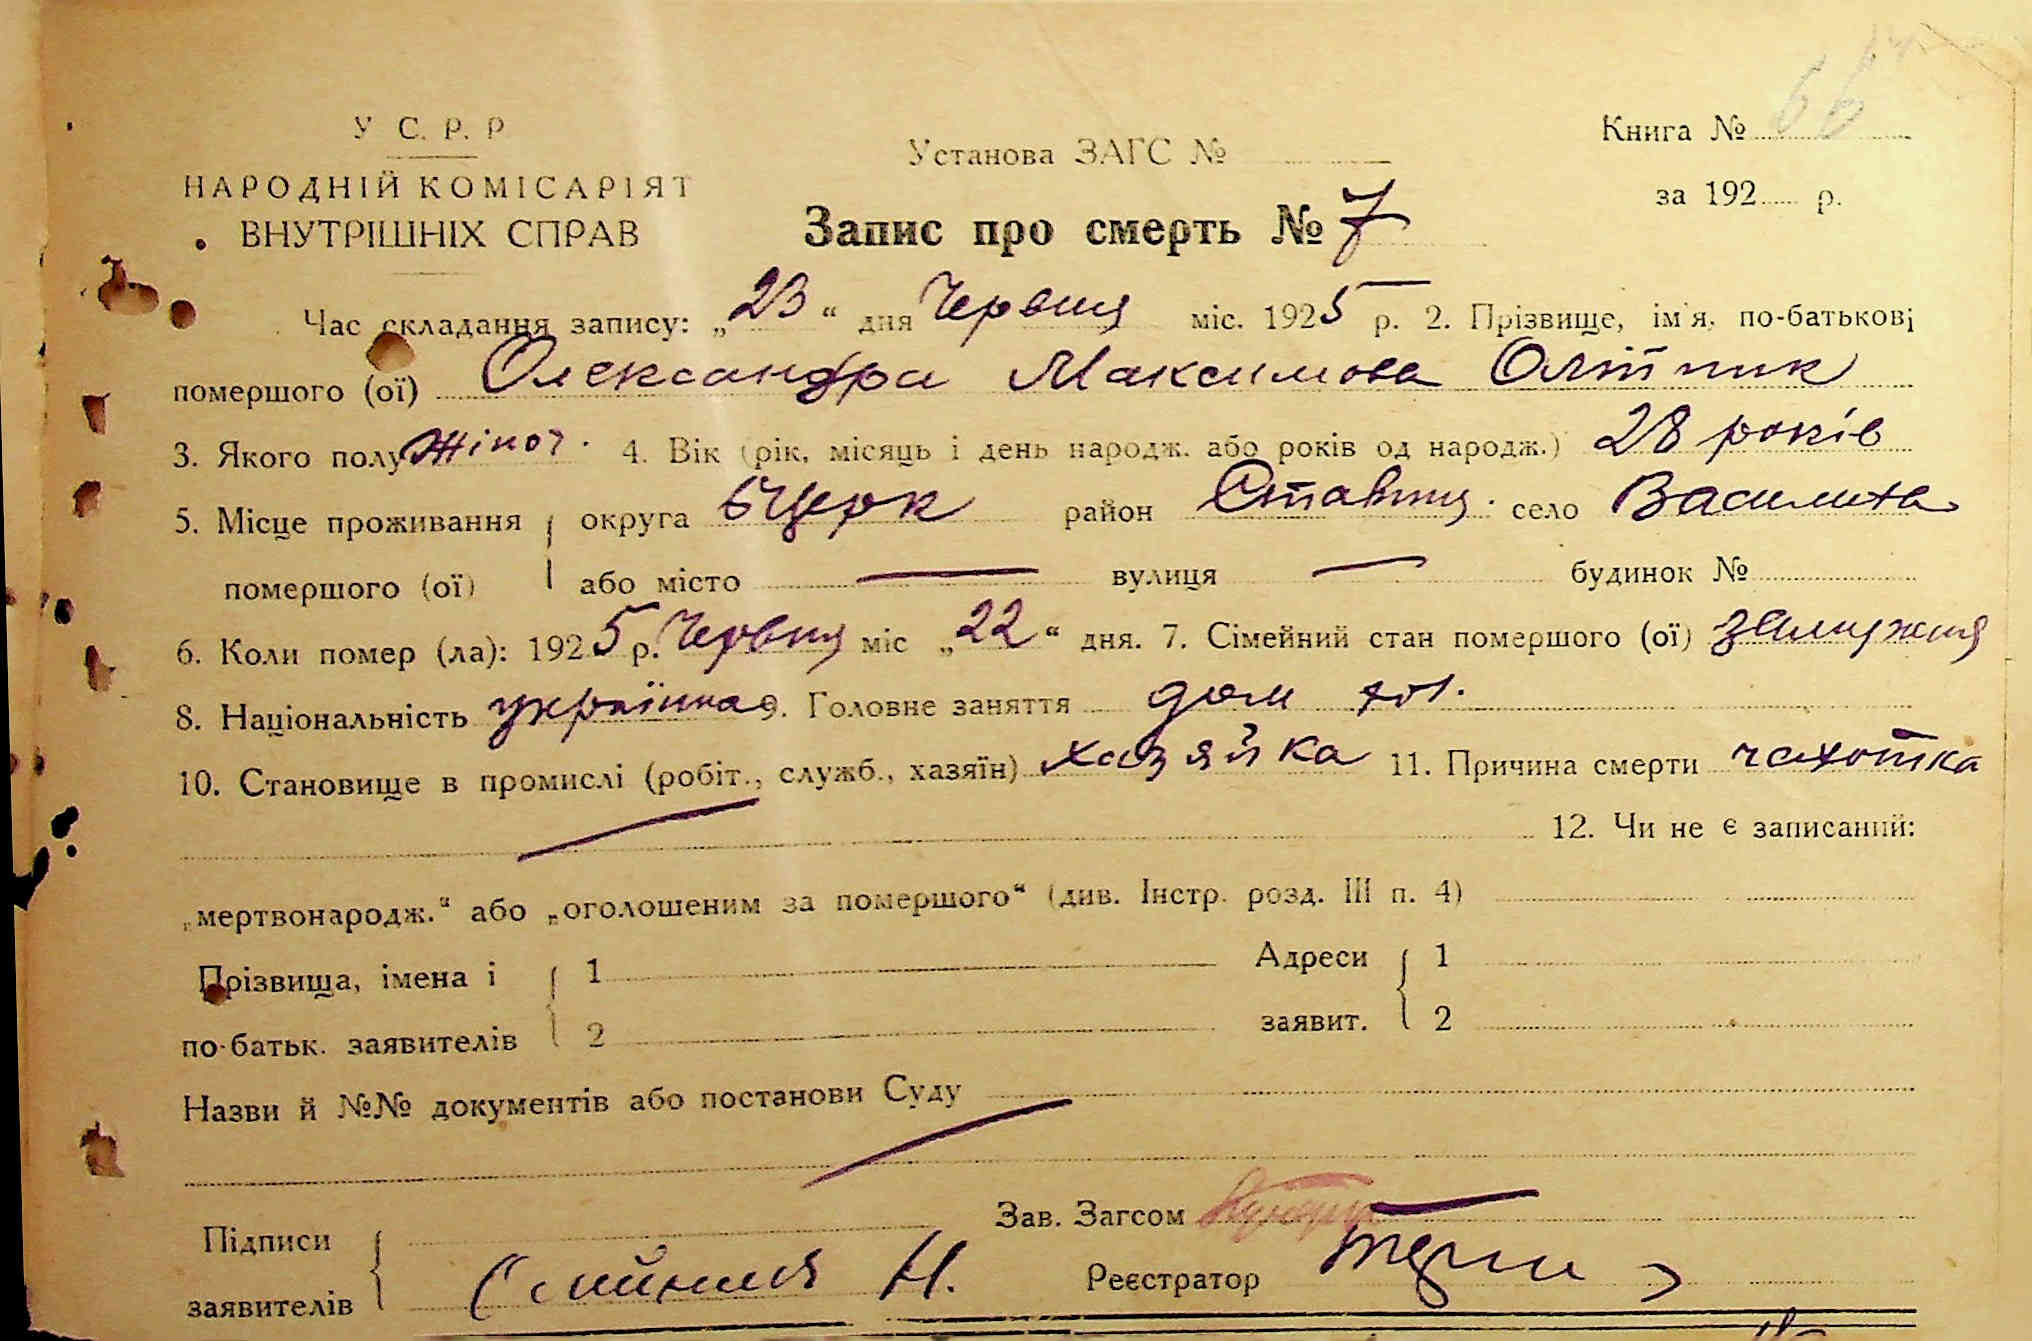 У С. Р. Р
НАРОДНІЙ КОМІСАРІЯТ
ВНУТРІШНІХ СПРАВ
Установа ЗАГС №
Книга № 66
за 192 р.
Запис про смерть № 7
Час складання запису: „23“ дня Червня міс. 1925 р. 2. Прізвище, ім'я, по-батькові
помершого (ої) Олександра Максимова Олійник
3. Якого полу жіноч. 4. Вік (рік, місяць і день народж. або років од народж.) 28 років
5. Місце проживання округа БЦерк район Ставищ. село Василиха
помершого (ої) або місто — вулиця — будинок №
6. Коли помер (ла): 1925 р. Червня міс „22“ дня. 7. Сімейний стан помершого (ої) замужня
8. Національність українка 9. Головне заняття дом хоз.
10. Становище в промислі (робіт., служб., хазяїн) хазяйка 11. Причина смерти чахотка
12. Чи не є записаний:
„мертвонародж.“ або „оголошеним за помершого“ (див. Інстр. розд. III п. 4)
Прізвища, імена і 1 Адреси 1
по-батьк. заявителів 2 заявит. 2
Назви й №№ документів або постанови Суду
Зав. Загсом
Підписи
заявителів Н. Реєстратор